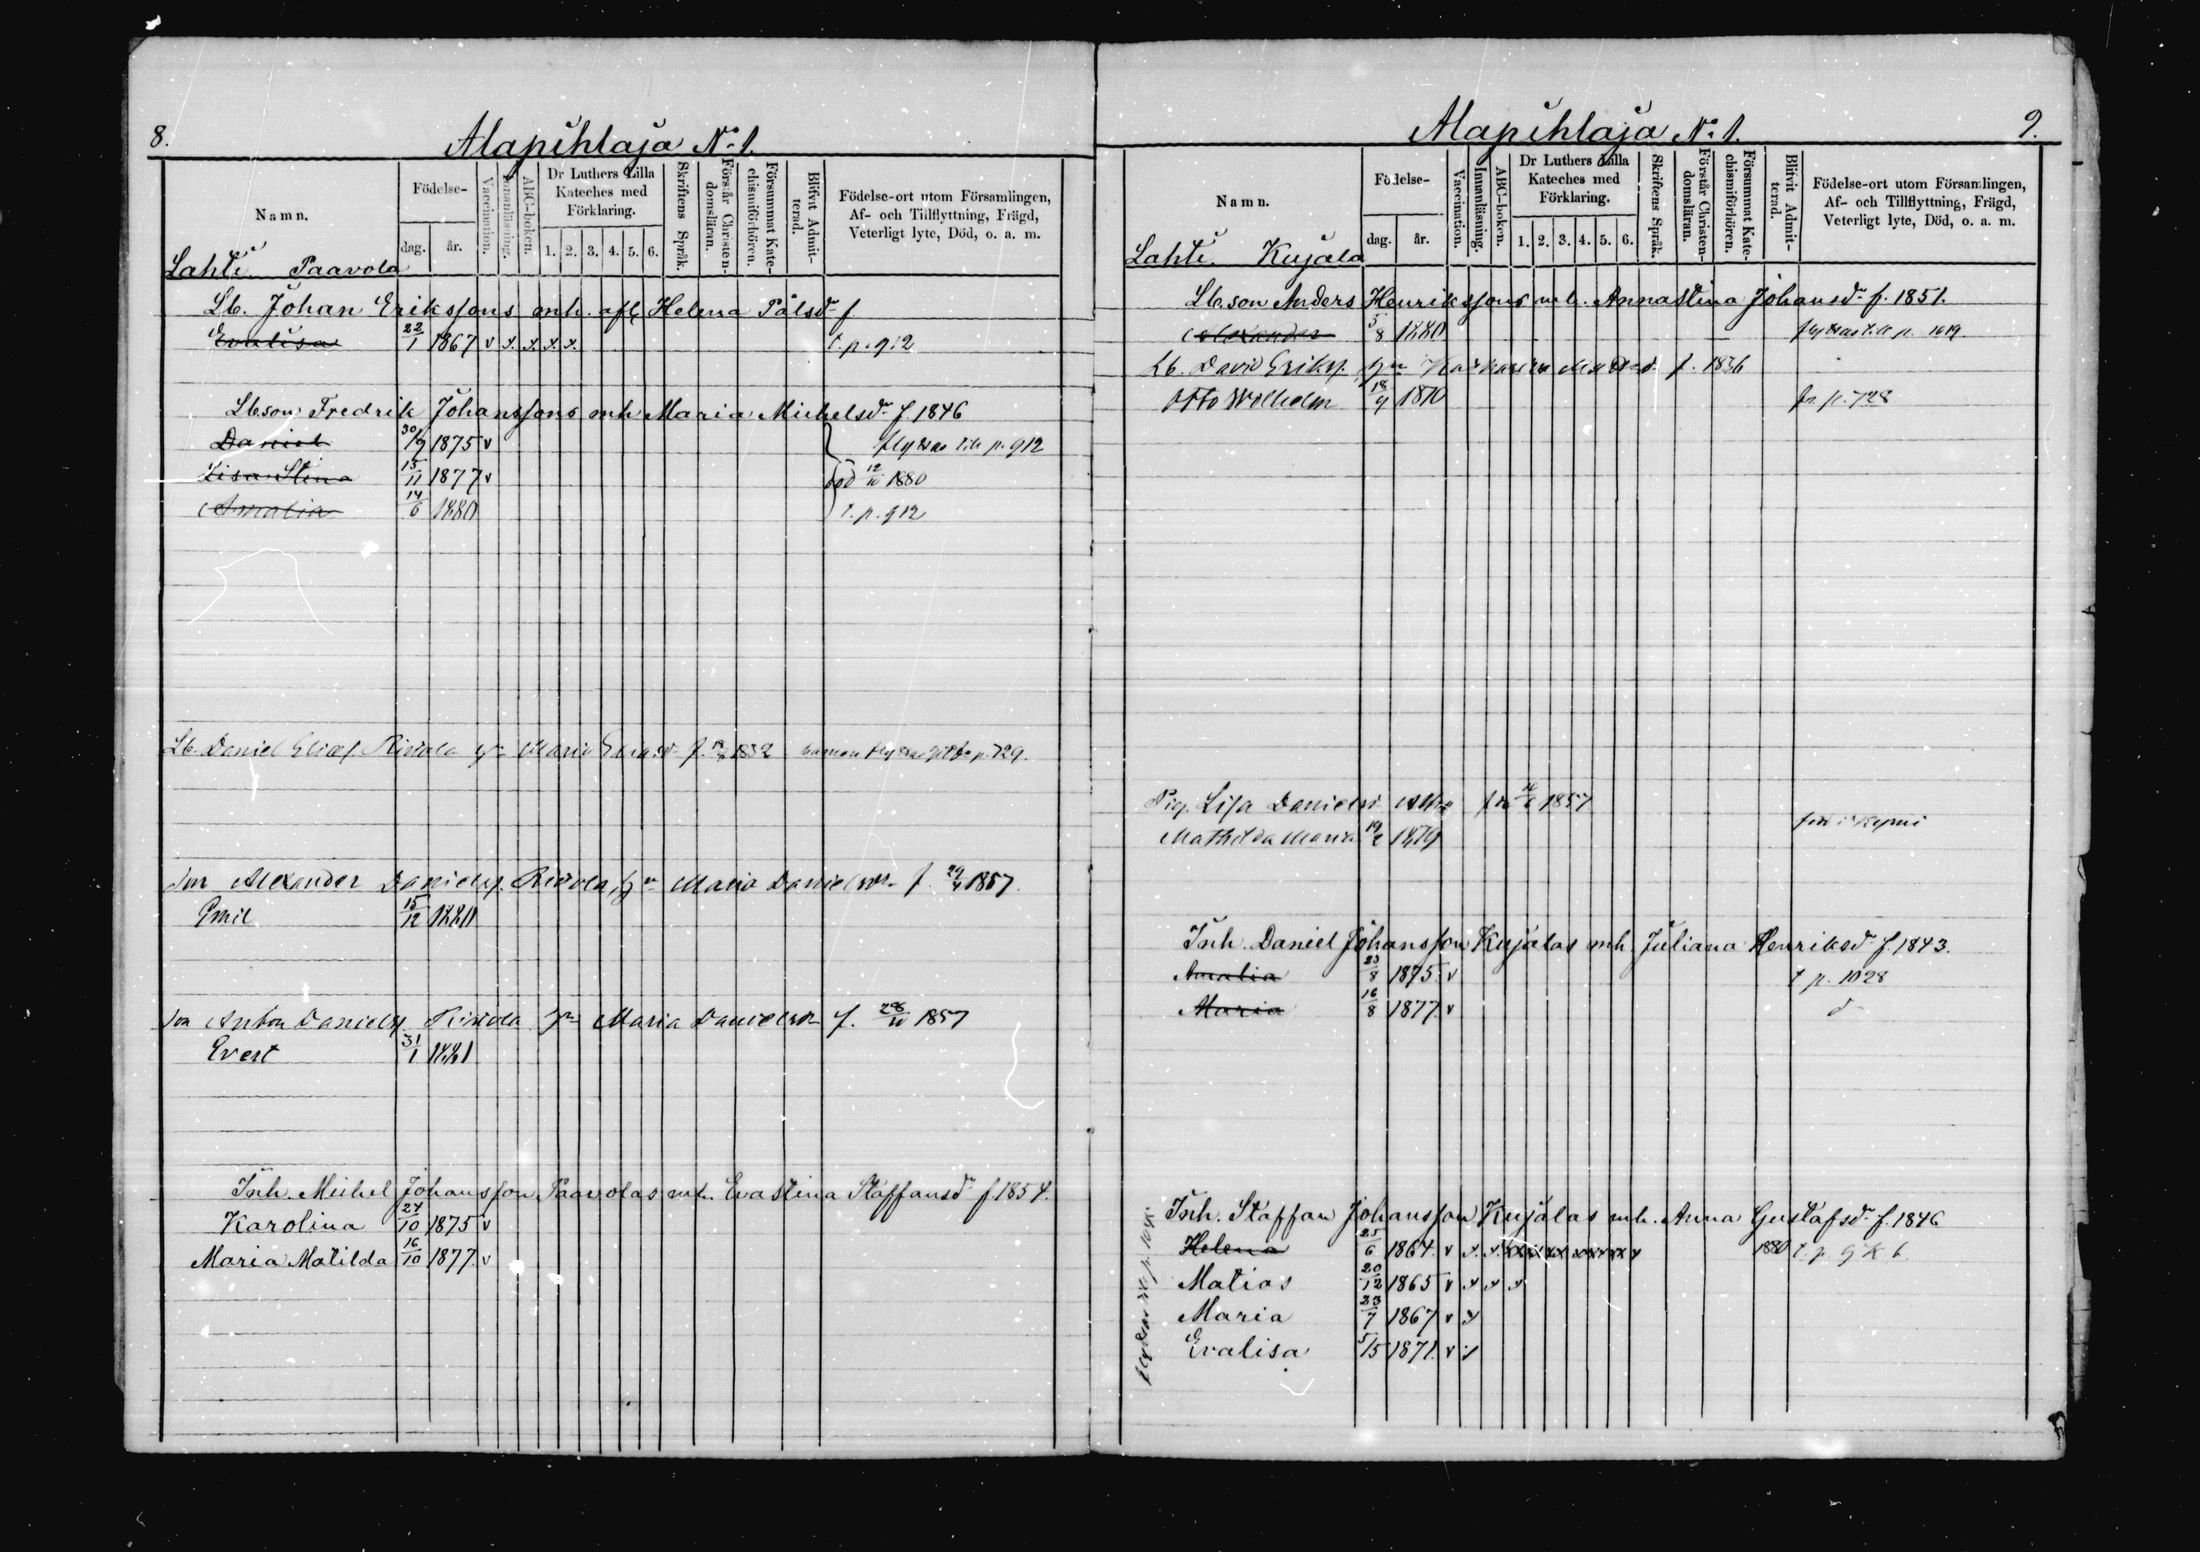 8.
Alapihlaja No 1.
Namn.
Födelse-
dag.
år.
Vaccination.
Innanläsning.
ABC-boken.
Dr Luthers Lilla
Kateches med
Förklaring.
1. 2. 3. 4. 5. 6.
Skriftens Språk.
Förstår Christen-
domsläran.
Försummat Kate-
chismiförhören.
Blifvit Admit-
terad.
Födelse-ort utom Församlingen,
Af- och Tillflyttning, Frägd,
Veterligt lyte, Död, o. a. m.
Lahti. Paavola
Lb. Johan Erikssons enh. afl. Helena Pålsdr f
Evalisa 22/1 1867 v x. x. x. x. t. p. 912
Lbson Fredrik Johanssons mh Maria Michelsdr f. 1846
Daniel 30/9 1875 v flyttas till p. 912
Lisa Stina 15/11 1877 v död 12/10 1880
Amalia 14/6 1880 t. p. 912
Lb. Daniel Rivola hu Maria f. 1832 p. 729.
Son Alexander Daniels. Rivola, hu Maria Danielsdr f. 29/4 1857.
Emil 15/12 1880
Son Anton Daniels. Rivola hu Maria Danielsdr f. 1857
Evert 31/1 1881
Inh. Michel Johansson Paavolas mh. Evastina Staffansdr f. 1854.
Karolina 24/10 1875 v
Maria Matilda 16/10 1877. v
9.
Alapihlaja No 1.
Namn.
Födelse-
dag.
år.
Vaccination.
Innanläsning.
ABC-boken.
Dr Luthers Lilla
Kateches med
Förklaring.
1. 2. 3. 4. 5. 6.
Skriftens Språk.
Förstår Christen-
domsläran.
Försummat Kate-
chismiförhören.
Blifvit Admit-
terad.
Födelse-ort utom Församlingen,
Af- och Tillflyttning, Frägd,
Veterligt lyte, Död, o. a. m.
Lahti. Kujala
Lb. son Anders Henrikssons mh. Annastina Johansdr f. 1851.
Alexander 5/8 1880 flyttas till p. 1619
Lb. David Eriks. hu f. 1836
Otto Wilhelm 18/9 1870 fr. p. 728
Pig. Lisa Danielsd. 1857
Mathilda Maria 19/2 1879
Inh. Daniel Johansson Kujalas mh. Juliana Henriksdr f. 1843.
Amalia 23/8 1875. v t p. 1028
Maria 16/8 1877. v d-
Inh. Staffan Johansson Kujalas mh. Anna Gustafsdr f. 1846
Helena 25/6 1864. v x. x. 1880 t. p. 9 K b.
Matias 20/12 1865 v x x x
Maria 23/7 1867 v x
Evalisa 5/5 1871. v x